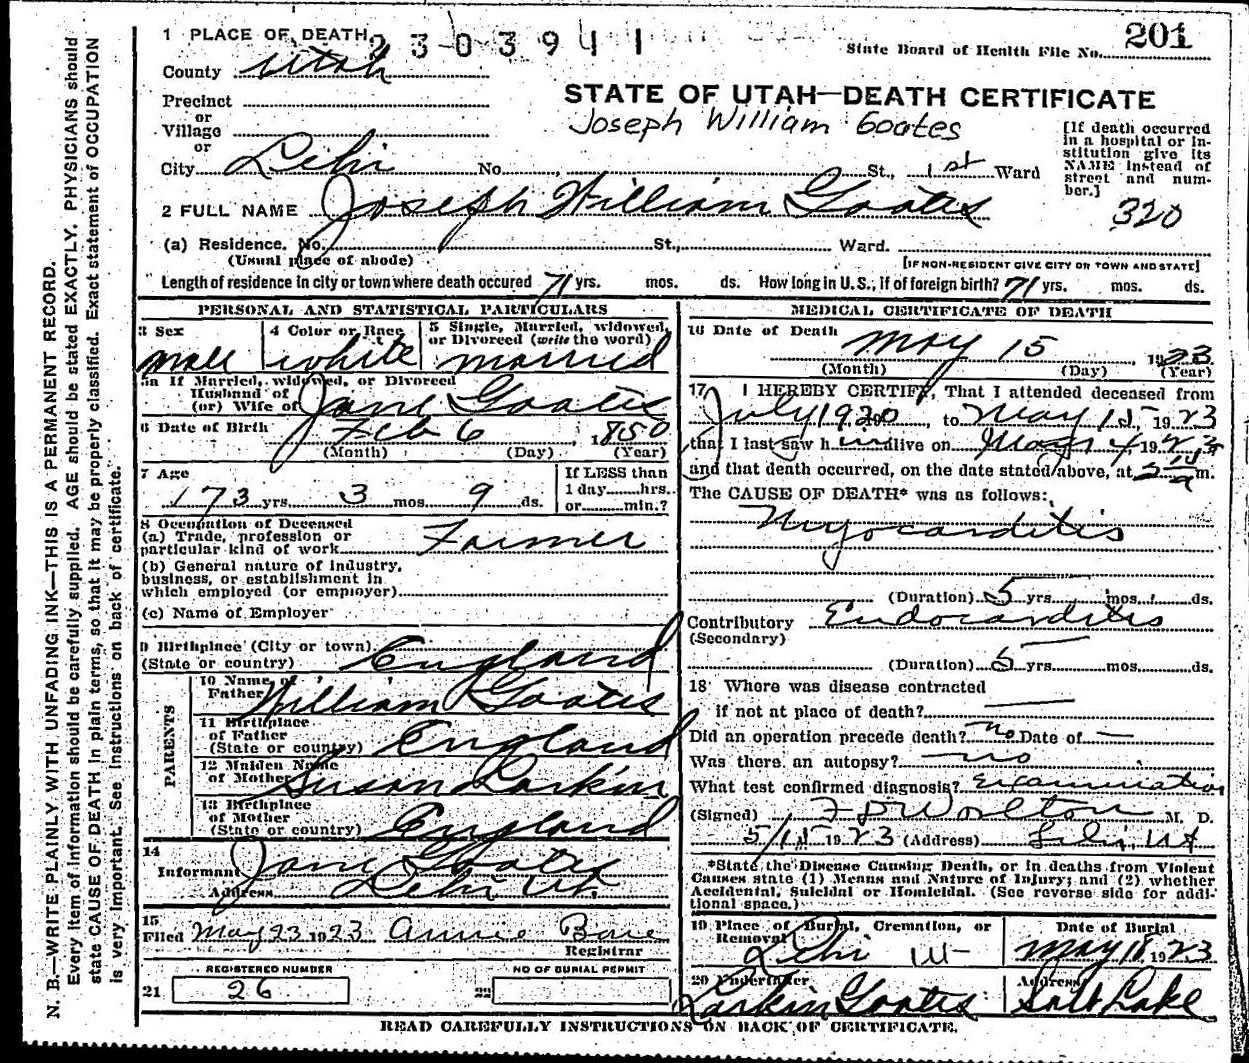 1 PLACE OF DEATH 2303911
State Board of Health File No. 201
County Utah
STATE OF UTAH—DEATH CERTIFICATE
Joseph William Goates
Precinct
or
Village
or
City Lehi No. St., 1st Ward
[If death occurred in a hospital or institution give its NAME instead of street and number.]
320
2 FULL NAME Joseph William Goates
(a) Residence. No. St., Ward.
(Usual place of abode)
[IF NON-RESIDENT GIVE CITY OR TOWN AND STATE]
Length of residence in city or town where death occured 71 yrs. mos. ds. How long in U.S., if of foreign birth? 71 yrs. mos. ds.
PERSONAL AND STATISTICAL PARTICULARS
3 Sex
Male
4 Color or Race
White
5 Single, Married, widowed, or Divorced (write the word)
Married
5a If Married, widowed, or Divorced
Husband of
(or) Wife of Jane Goates
6 Date of Birth Feb 6, 1850
(Month) (Day) (Year)
7 Age
73 yrs. 3 mos. 9 ds.
If LESS than
1 day hrs.
or min.?
8 Occupation of Deceased
(a) Trade, profession or
particular kind of work Farmer
(b) General nature of industry,
business, or establishment in
which employed (or employer)
(c) Name of Employer
9 Birthplace (City or town)
(State or country) England
PARENTS
10 Name of
Father William Goates
11 Birthplace
of Father
(State or country) England
12 Maiden Name
of Mother Susan Larkin
13 Birthplace
of Mother
(State or country) England
14
Informant Jane Goates
Address Lehi Ut.
15
Filed May 23 1923 Annie Bone
Registrar
REGISTERED NUMBER
21 26
NO OF BURIAL PERMIT
22
MEDICAL CERTIFICATE OF DEATH
16 Date of Death
May 15 1923
(Month) (Day) (Year)
17 I HEREBY CERTIFY, That I attended deceased from
July 1920, to May 15, 1923
that I last saw h im alive on May 14, 1923
and that death occurred, on the date stated above, at m.
The CAUSE OF DEATH* was as follows:
Myocarditis
(Duration) 5 yrs. mos. ds.
Contributory Endocarditis
(Secondary)
(Duration) 5 yrs. mos. ds.
18 Where was disease contracted
if not at place of death?
Did an operation precede death? no Date of —
Was there an autopsy? no
What test confirmed diagnosis? Examination
(Signed) F D Worlton M. D.
5/15 1923 (Address) Lehi, Ut
*State the Disease Causing Death, or in deaths from Violent
Causes state (1) Means and Nature of Injury; and (2) whether
Accidental, Suicidal or Homicidal. (See reverse side for additional space.)
19 Place of Burial, Cremation, or
Removal
Lehi Ut
Date of Burial
May 18, 1923
20 Undertaker
Larkin Goates
Address
Salt Lake
READ CAREFULLY INSTRUCTIONS ON BACK OF CERTIFICATE.
N. B.—WRITE PLAINLY WITH UNFADING INK—THIS IS A PERMANENT RECORD.
Every item of information should be carefully supplied. AGE should be stated EXACTLY. PHYSICIANS should
state CAUSE OF DEATH in plain terms, so that it may be properly classified. Exact statement of OCCUPATION
is very important. See instructions on back of certificate.